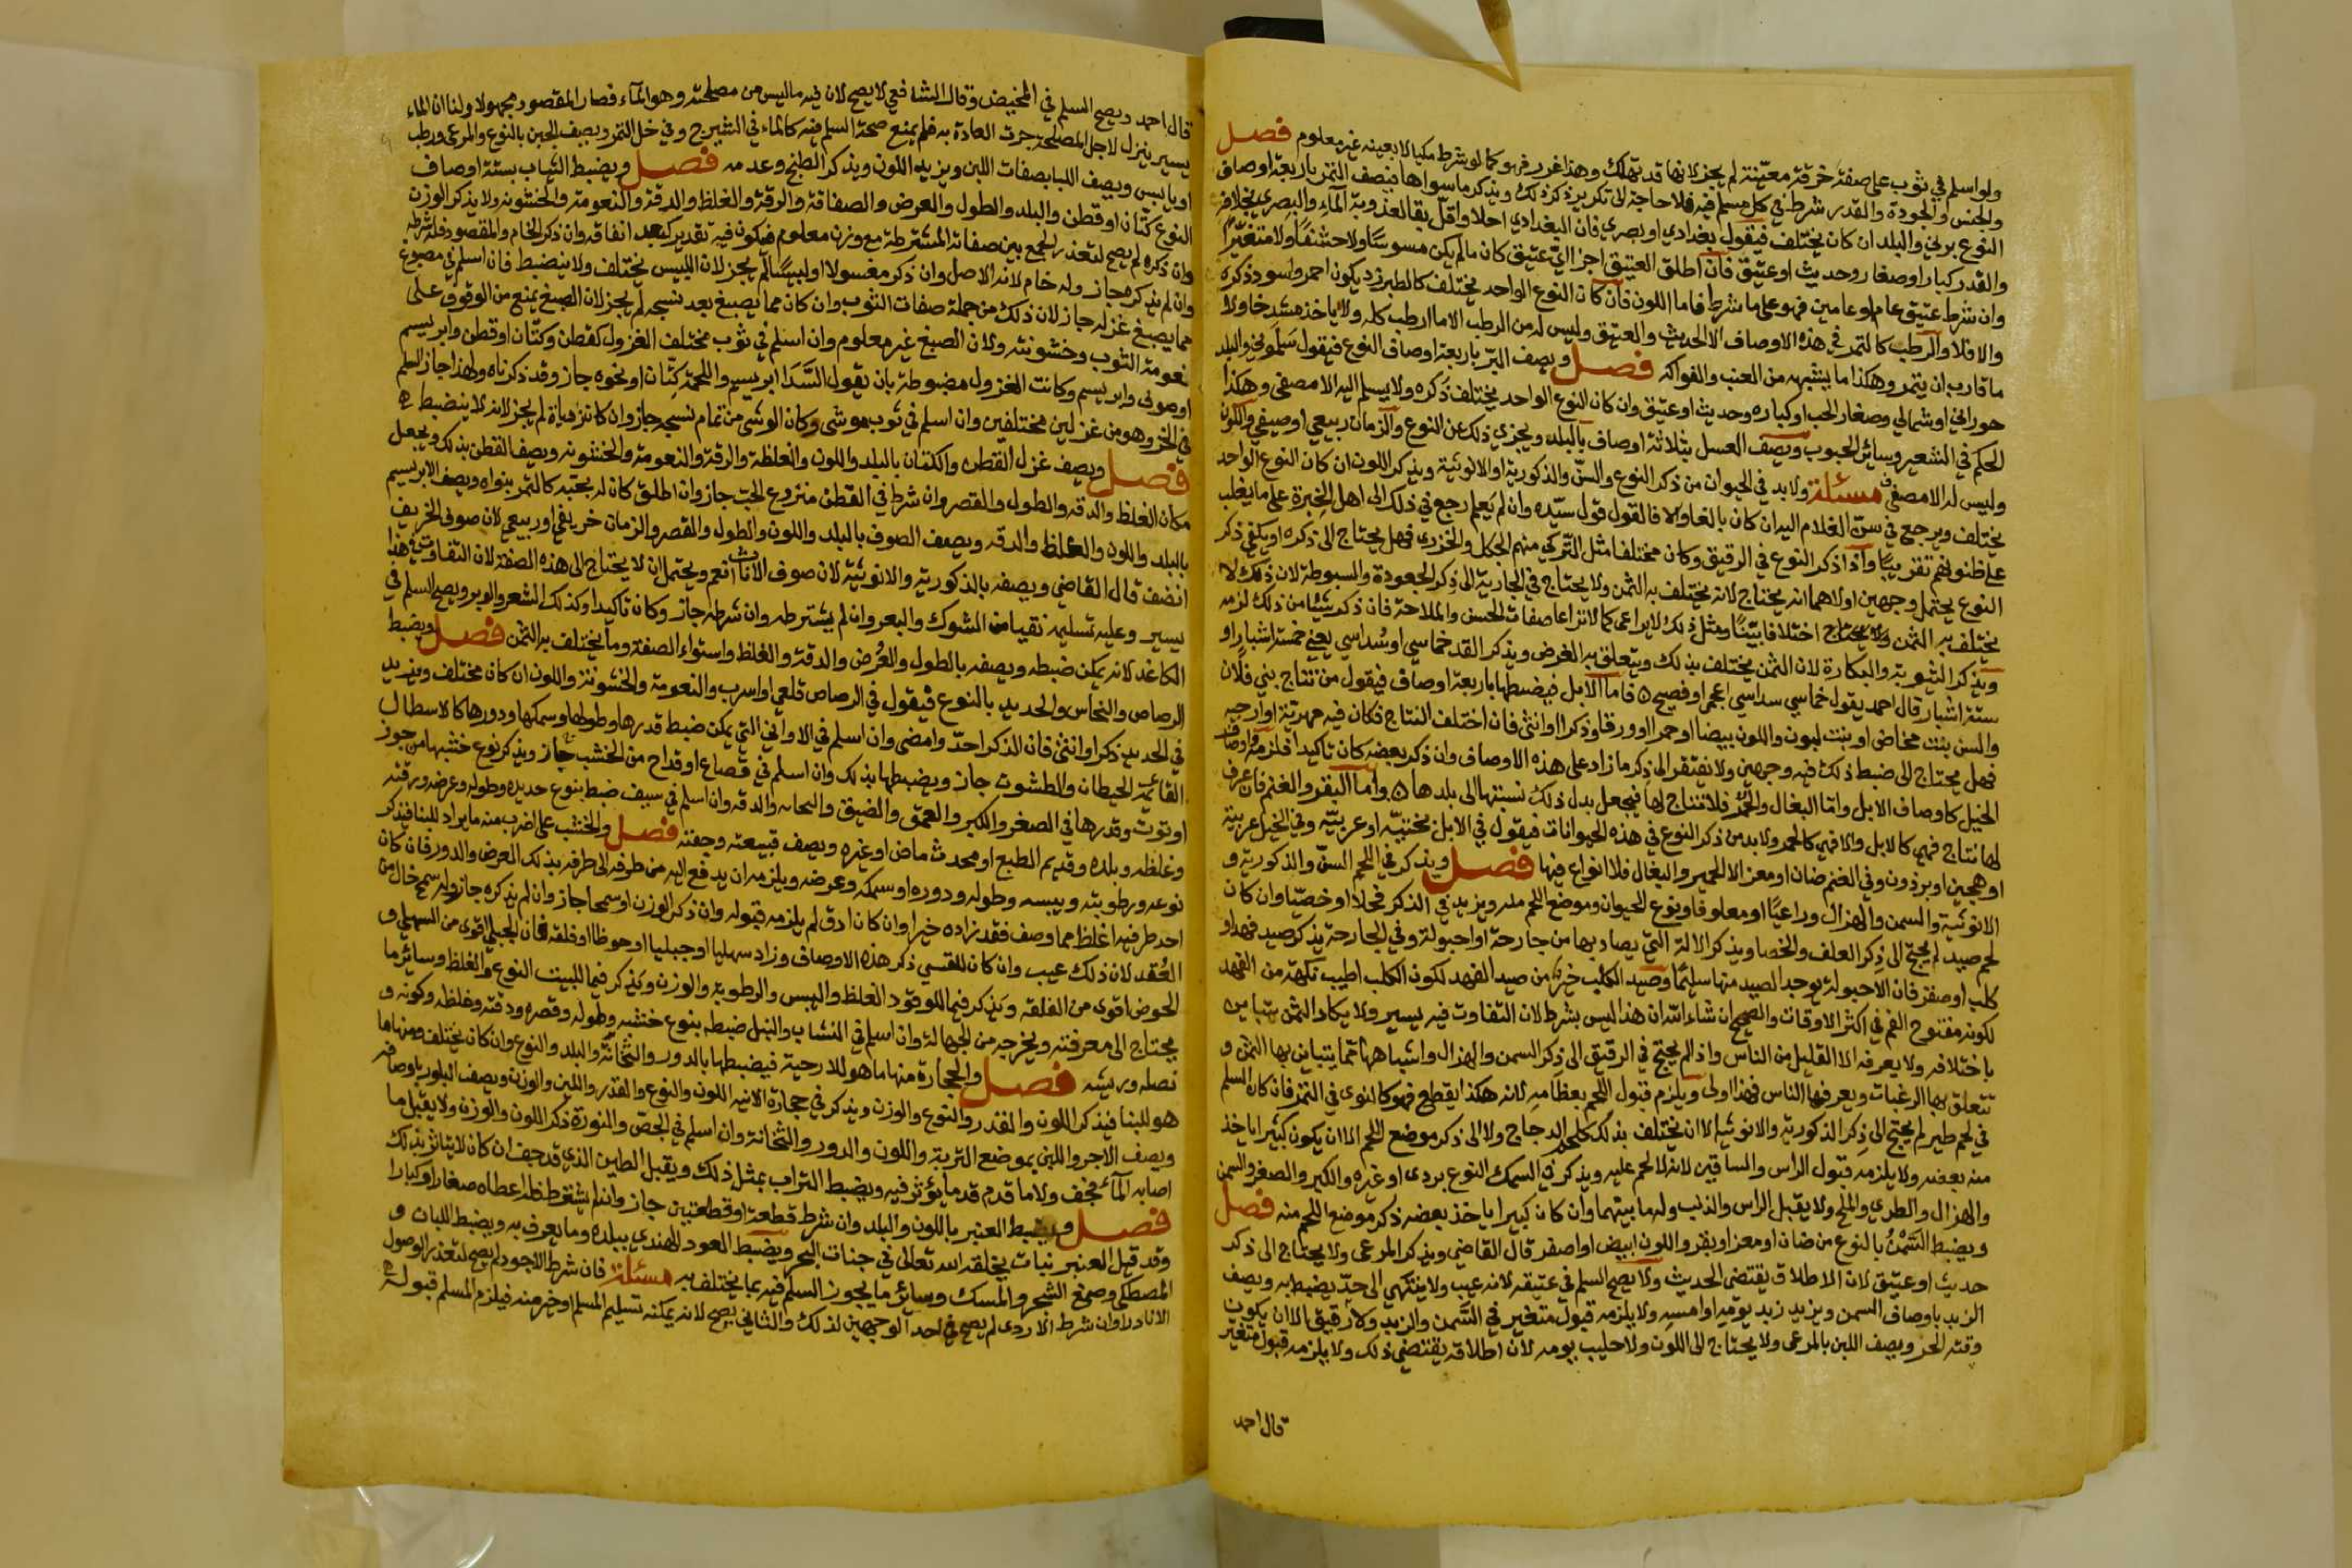 ولو اسلم في ثوب على صفة خرقة معيّنة لم يجز لانها قد تهلك وهذا غرر فهو كما لو شرط مكيالا بعينه غير معلوم فصل
والجنس والجودة والقدر شرط في كل مسلم فيه فلا حاجة الى تكرير ذكر ذلك ويذكر ما سواها فيصف التمر باربعة اوصاف
النوع برني والبلد ان كان يختلف فيقول بغدادي او بصري فان البغدادي احلا واقلّ بقا لعذوبة الماء والبصري بخلافه
والقدر كبار او صغار وحديث او عتيق فان اطلق العتيق اجزا ايّ عتيق كان ما لم يكن مسوسًا ولا حشفًا ولا متغيّرًا
وان شرط عتيق عام او عامين فهو على ما شرط فاما اللون فان كان النوع الواحد يختلف كالطبرزد يكون احمر واسود ذكره
والا فلا والرطب كالتمر في هذه الاوصاف الا الحديث والعتيق وليس له من الرطب الا ما ارطب كله ولا ياخذ مشدخا ولا
ما قارب ان يتمر وهكذا ما يشبهه من العنب والفواكه فصل ويصف البرّ باربعة اوصاف النوع فيقول سلموني والبلد
حوراني او شمالي وصغار الحب او كباره وحديث او عتيق وان كان النوع الواحد يختلف ذكره ولا يسلم اليه الا مصفى وهكذا
الحكم في الشعير وسائر الحبوب ويصف العسل بثلاثة اوصاف بالبلد ويجزي ذلك عن النوع والزمان ربيعي او صيفي واللون
وليس له الا مصفى مسئلة ولا بد في الحيوان من ذكر النوع والسنّ والذكورية او الانوثية ويذكر اللون ان كان النوع الواحد
يختلف ويرجع في سن الغلام اليه ان كان بالغا والا فالقول قول سيّده وان لم يعلم رجع في ذلك الى اهل الخبرة على ما يغلب
على ظنونهم تقريبًا واذا ذكر النوع في الرقيق وكان مختلفا مثل التركي منهم الجكل والخزري فهل يحتاج الى ذكره او يكفي ذكر
النوع يحتمل وجهين اولاهما انه يحتاج لانه يختلف به الثمن ولا يحتاج في الجارية الى ذكر الجعودة والسبوطة لان ذلك لا
يختلف به الثمن اختلافا بيّنًا ومثل ذلك لا يراعى كما لا تراعا صفات الحسن والملاحة فان ذكر شيئا من ذلك لزمه
ويذكر الثيوبة والبكارة لان الثمن يختلف بذلك ويتعلق به الغرض ويذكر القد خماسي او سداسي يعني خمسة اشبار او
ستة اشبار قال احمد يقول خماسي سداسي اعجمي او فصيح فاما الابل فيضبطها باربعة اوصاف فيقول من نتاج بني فلان
والسن بنت مخاض او بنت لبون واللون بيضا او حمرا او ورقا وذكرا او انثى فان اختلف النتاج فكان فيه مهرية او ارحبية
فهل يحتاج الى ضبط ذلك فيه وجهين ولا يفتقر الى ذكر ما زاد على هذه الاوصاف وان ذكر بعضه كان تاكيدا فلزمه واوصاف
الخيل كاوصاف الابل واما البغال والحمر فلا نتاج لها فيجعل بدل ذلك نسبتها الى بلدها واما البقر والغنم فان عرف
لها نتاج فهي كالابل والا فهي كالحمر ولا بد من ذكر النوع في هذه الحيوانات فيقول في الابل بختيّه او عربيّة وفي الخيل عربية
او هجين او برذون وفي الغنم ضان او معز الا الحمير والبغال فلا انواع فيها فصل ويذكر في اللحم السنّ والذكورية و
الانوثية والسمن والهزال وراعيًا او معلوفا ونوع الحيوان وموضع اللحم منه ويزيد في الذكر فحلا او خصيّا وان كان
لحم صيد لم يحتج الى ذكر العلف والخصا ويذكر الالة التي يصاد بها من جارحة او احبولة وفي الجارحة يذكر صيد فهد او
كلب او صقر فان الاحبولة يوجد الصيد منها سليمًا وصيد الكلب خير من صيد الفهد لكون الكلب اطيب نكهة من الفهد
لكونه مفتوح الفم في اكثر الاوقات والصحيح ان شاء الله ان هذا ليس بشرط لان التفاوت فيه يسير ولا يكاد الثمن يتباين
باختلافه ولا يعرفه الا القليل من الناس واذا لم يحتج في الرقيق الى ذكر السمن والهزال واشباهها مما يتباين بها الثمن و
تتعلق بها الرغبات ويعرفها الناس فهذا اولى ويلزم قبول اللحم بعظامه لانه هكذا يقطع فهو كالنوى في التمر فان كان السلم
في لحم طير لم يحتج الى ذكر الذكورية والانوثية الا ان يختلف بذلك كلحم الدجاج ولا الى ذكر موضع اللحم الا ان يكون كبيرا ياخذ
منه بعضه ولا يلزمه قبول الراس والساقين لانه لا لحم عليه ويذكر في السمك النوع بردي او غيره والكبر والصغر والسمن
والهزال والطري والملح ولا يقبل الراس والذنب وله ما بينهما وان كان كبيرا ياخذ بعضه ذكر موضع اللحم منه فصل
ويضبط السّمن بالنوع من ضان او معز او بقر واللون ابيض او اصفر قال القاضي ويذكر المرعى ولا يحتاج الى ذكر
حديث او عتيق لان الاطلاق يقتضي الحديث ولا يصح السلم في عتيقه لانه عيب ولا ينتهي الى حدّ يضبط به ويصف
الزبد باوصاف السمن ويزيد زبد يومه او امسه ولا يلزمه قبول متغير في السّمن والزبد ولا رقيق الا ان يكون
وقته الحر ويصف اللبن بالمرعى ولا يحتاج الى اللون ولا حليب يومه لان اطلاقه يقتضي ذلك ولا يلزمه قبول متغير
قال احمد
قال احمد ويصح السلم في المخيض وقال الشافعي لا يصح لان فيه ما ليس من مصلحته وهو الماء فصار المقصود مجهولا ولنا ان الماء
يسير يترك لاجل المصلحة جرت العادة به فلم يمنع صحة السلم فيه كالماء في الشيرج وفي خل التمر ويصف الجبن بالنوع والمرعى ورطب
او يابس ويصف اللبا بصفات اللبن ويزيد اللون ويذكر الطبخ وعدمه فصل ويضبط الثياب بستة اوصاف
النوع كتان او قطن والبلد والطول والعرض والصفاقة والرقة والغلظ والدقة والنعومة والخشونة ولا يذكر الوزن
وان ذكره لم يصح لتعذر الجمع بين صفاته المشترطة مع وزن معلوم فيكون فيه تقدير يبعد اتفاقه وان ذكر الخام والمقصود فله شرطه
وان لم يذكره جاز وله خام لانه الاصل وان ذكر مغسولا او لبيسًا لم يجز لان اللبيس يختلف ولا ينضبط فان اسلم في مصبوغ
مما يصبغ غزله جاز لان ذلك من جملة صفات الثوب وان كان مما يصبغ بعد نسجه لم يجز لان الصبغ يمنع من الوقوف على
نعومة الثوب وخشونته ولان الصبغ غير معلوم وان اسلم في ثوب مختلف الغزول كقطن وكتّان او قطن وابريسم
او صوف وابريسم وكانت الغزول مضبوطة بان يقول السّدا ابريسم واللحمة كتّان او نحوه جاز وقد ذكرناه ولهذا جاز السلم
في الخز وهو من غزلين مختلفين وان اسلم في ثوب موشى وكان الوشي من تمام نسجه جاز وان كان زيادة لم يجز لانه لا ينضبط
فصل ويصف غزل القطن والكتان بالبلد واللون والغلظة والرقة والنعومة والخشونة ويصف القطن بذلك ويجعل
مكان الغلظ والدقه والطول والقصر وان شرط في القطن منزوع الحبّ جاز وان اطلق كان له بحبّه كالتمر بنواه ويصف الابريسم
بالبلد واللون والغلظ والدقه ويصف الصوف بالبلد واللون والطول والقصر والزمان خريفي او ربيعي لان صوف الخريف
انضف قال القاضي ويصفه بالذكورية والانوثية لان صوف الاناث انعم ويحتمل ان لا يحتاج الى هذه الصفة لان التفاوت في هذا
يسير وعليه تسليمه نقيا من الشوك والبعر وان لم يشترطه وان شرطه جاز وكان تاكيدا وكذلك الشعر والوبر ويصح السلم في
الكاغد لانه يمكن ضبطه ويصفه بالطول والعرض والدقة والغلظ واستواء الصفة وما يختلف به الثمن فصل ويضبط
الرصاص والنحاس والحديد بالنوع فيقول في الرصاص قلعي او اسرب والنعومة والخشونة واللون ان كان مختلف ويزيد
في الحديد ذكر او انثى فان الذكر احدّ وامضى وان اسلم في الاواني التي يمكن ضبط قدرها وطولها وسمكها ودورها كالاسطال
القائمة الحيطان والطشوت جاز ويضبطها بذلك وان اسلم في قصاع او قداح من الخشب جاز ويذكر نوع خشبها من جوز
او توت وقدرها في الصغر والكبر والعمق والضيق والثخانه والدقه وان اسلم في سيف ضبط بنوع حديده وطوله وعرضه ورقته
وغلظه وبلده وقديم الطبع او محدث ماض او غيره ويصف قبيعته وجفنه فصل والخشب على اضرب منه ما يراد للبنا فيذكر
نوعه ورطوبته ويبسه وطوله ودوره او سمكه وعرضه ويلزمه ان يدفع اليه من طرفه الى طرفه بذلك العرض والدور فان كان
احد طرفيه اغلظ مما وصف فقد زاده خيرا وان كان ادق لم يلزمه قبوله وان ذكر الوزن او سمحا جاز وان لم يذكره جاز وله سمح خال من
العُقد لان ذلك عيب وان كان للقسي ذكر هذه الاوصاف وزاد سهليا او جبليا او حوطا او فلقه فان الجبلي اقوى من السهلي و
الحوض اقوى من الفلقه ويذكر فيما للوقود الغلظ واليبس والرطوبة والوزن ويذكر فيما للبيت النوع والغلظ وسائر ما
يحتاج الى معرفته ويخرجه من الجهالة وان اسلم في النشاب والنبل ضبطه بنوع خشبه وطوله وقصره ودقته وغلظه وكونه و
نصله وريشه فصل والحجارة منها ما هو للارحية فيضبطها بالدور والثخانة والبلد والنوع وان كان يختلف ومنها ما
هو للبنا فيذكر اللون والقدر والنوع والوزن ويذكر في حجارة الانيه اللون والنوع والقدر واللين والوزن ويصف البلور باوصافه
ويصف الاجر واللبن بموضع التربة واللون والدور والثخانة وان اسلم في الجصّ والنورة ذكر اللون والوزن ولا يقبل ما
اصابه الماء فجف ولا ما قدم قدما يؤثر فيه ويضبط التراب بمثل ذلك ويقبل الطين الذي قد جف ان كان لا يتاثر بذلك
فصل ويضبط العنبر باللون والبلد وان شرط قطعة او قطعتين جاز وان لم يشترط فله اعطاه صغارا او كبارا
وقد قيل العنبر نبات يخلقه الله تعالى في جنبات البحر ويضبط العود الهندي ببلده وما يعرف به ويضبط اللبان و
المصطكي وصمغ الشجر والمسك وسائر ما يجوز السلم فيه بما يختلف به مسئلة فان شرط الاجود لم يصح لتعذر الوصول
الا نادرا وان شرط الاردى لم يصح في احد الوجهين لذلك والثاني يصح لانه يمكنه تسليم المسلم او خير منه فيلزم المسلم قبوله